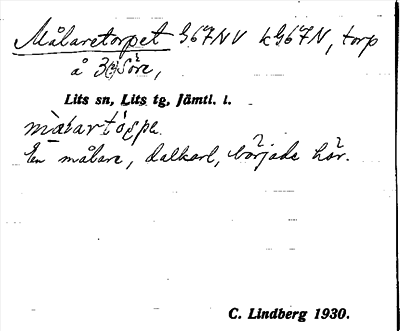 Målaretorpet G67NV kG67N, torp
å 3(2) Söre,
Lits sn, Lits tg, Jämtl. l.
En målare, dalkarl, började här.
C. Lindberg 1930.